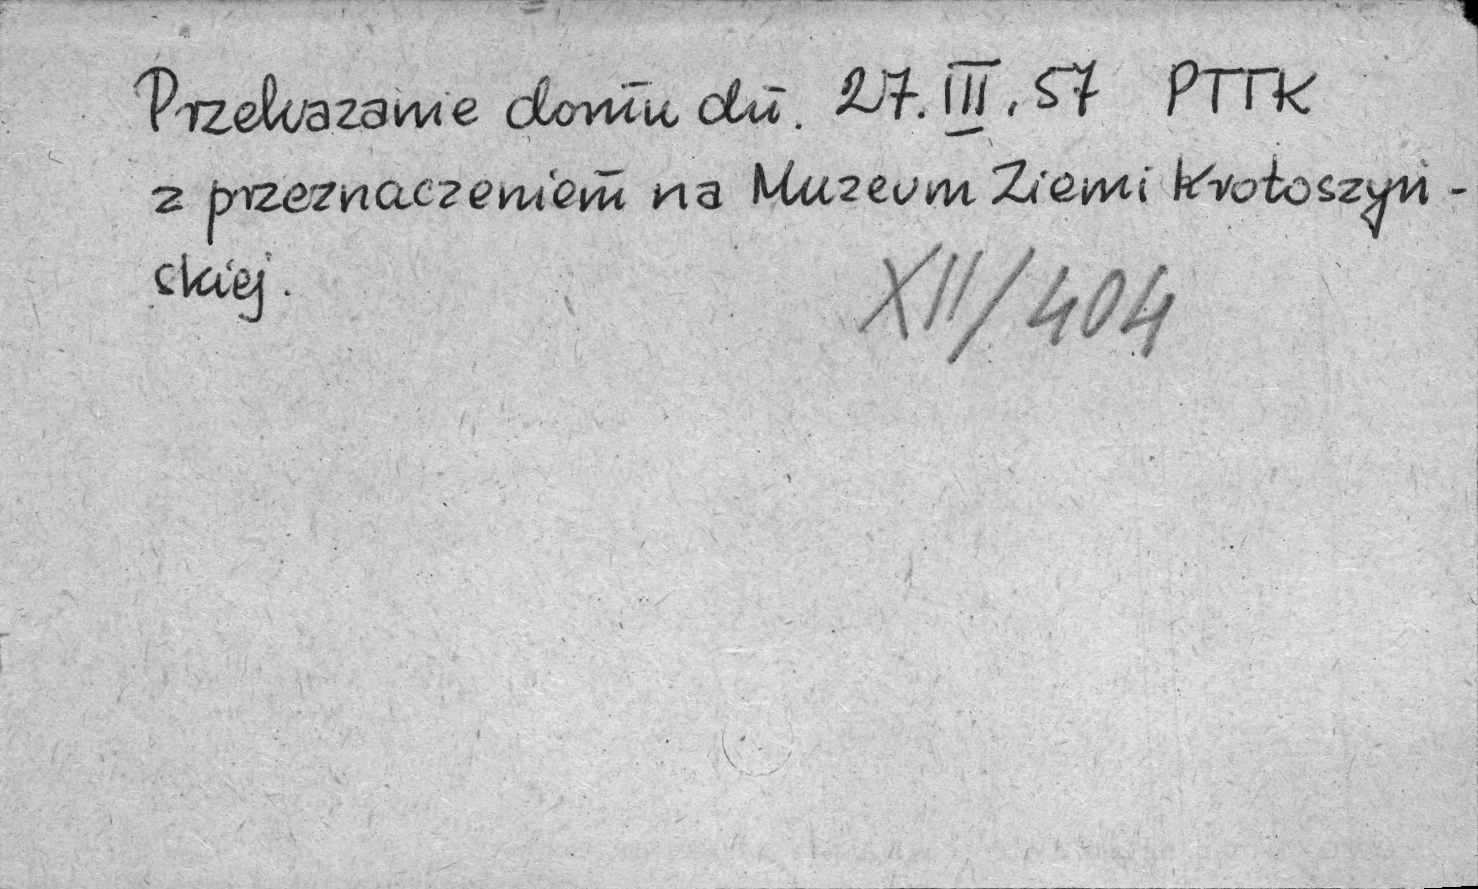 Przekazanie domu dn. 27.III.57 PTTK
z przeznaczeniem na Muzeum Ziemi Krotoszyń-
skiej.
XII/404